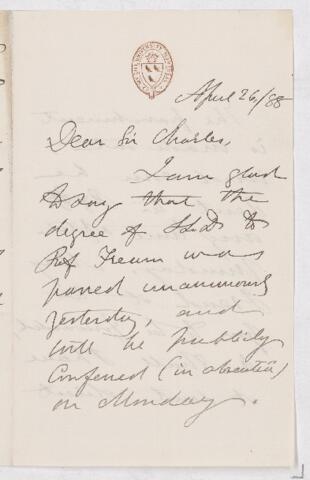 April 26/88
Dear Sir Charles,
I am glad
to say that the
degree of LL.D to
Prof Fream was
passed unanimously
yesterday, and
will be publicly
Conferred (in absentiâ)
on Monday.